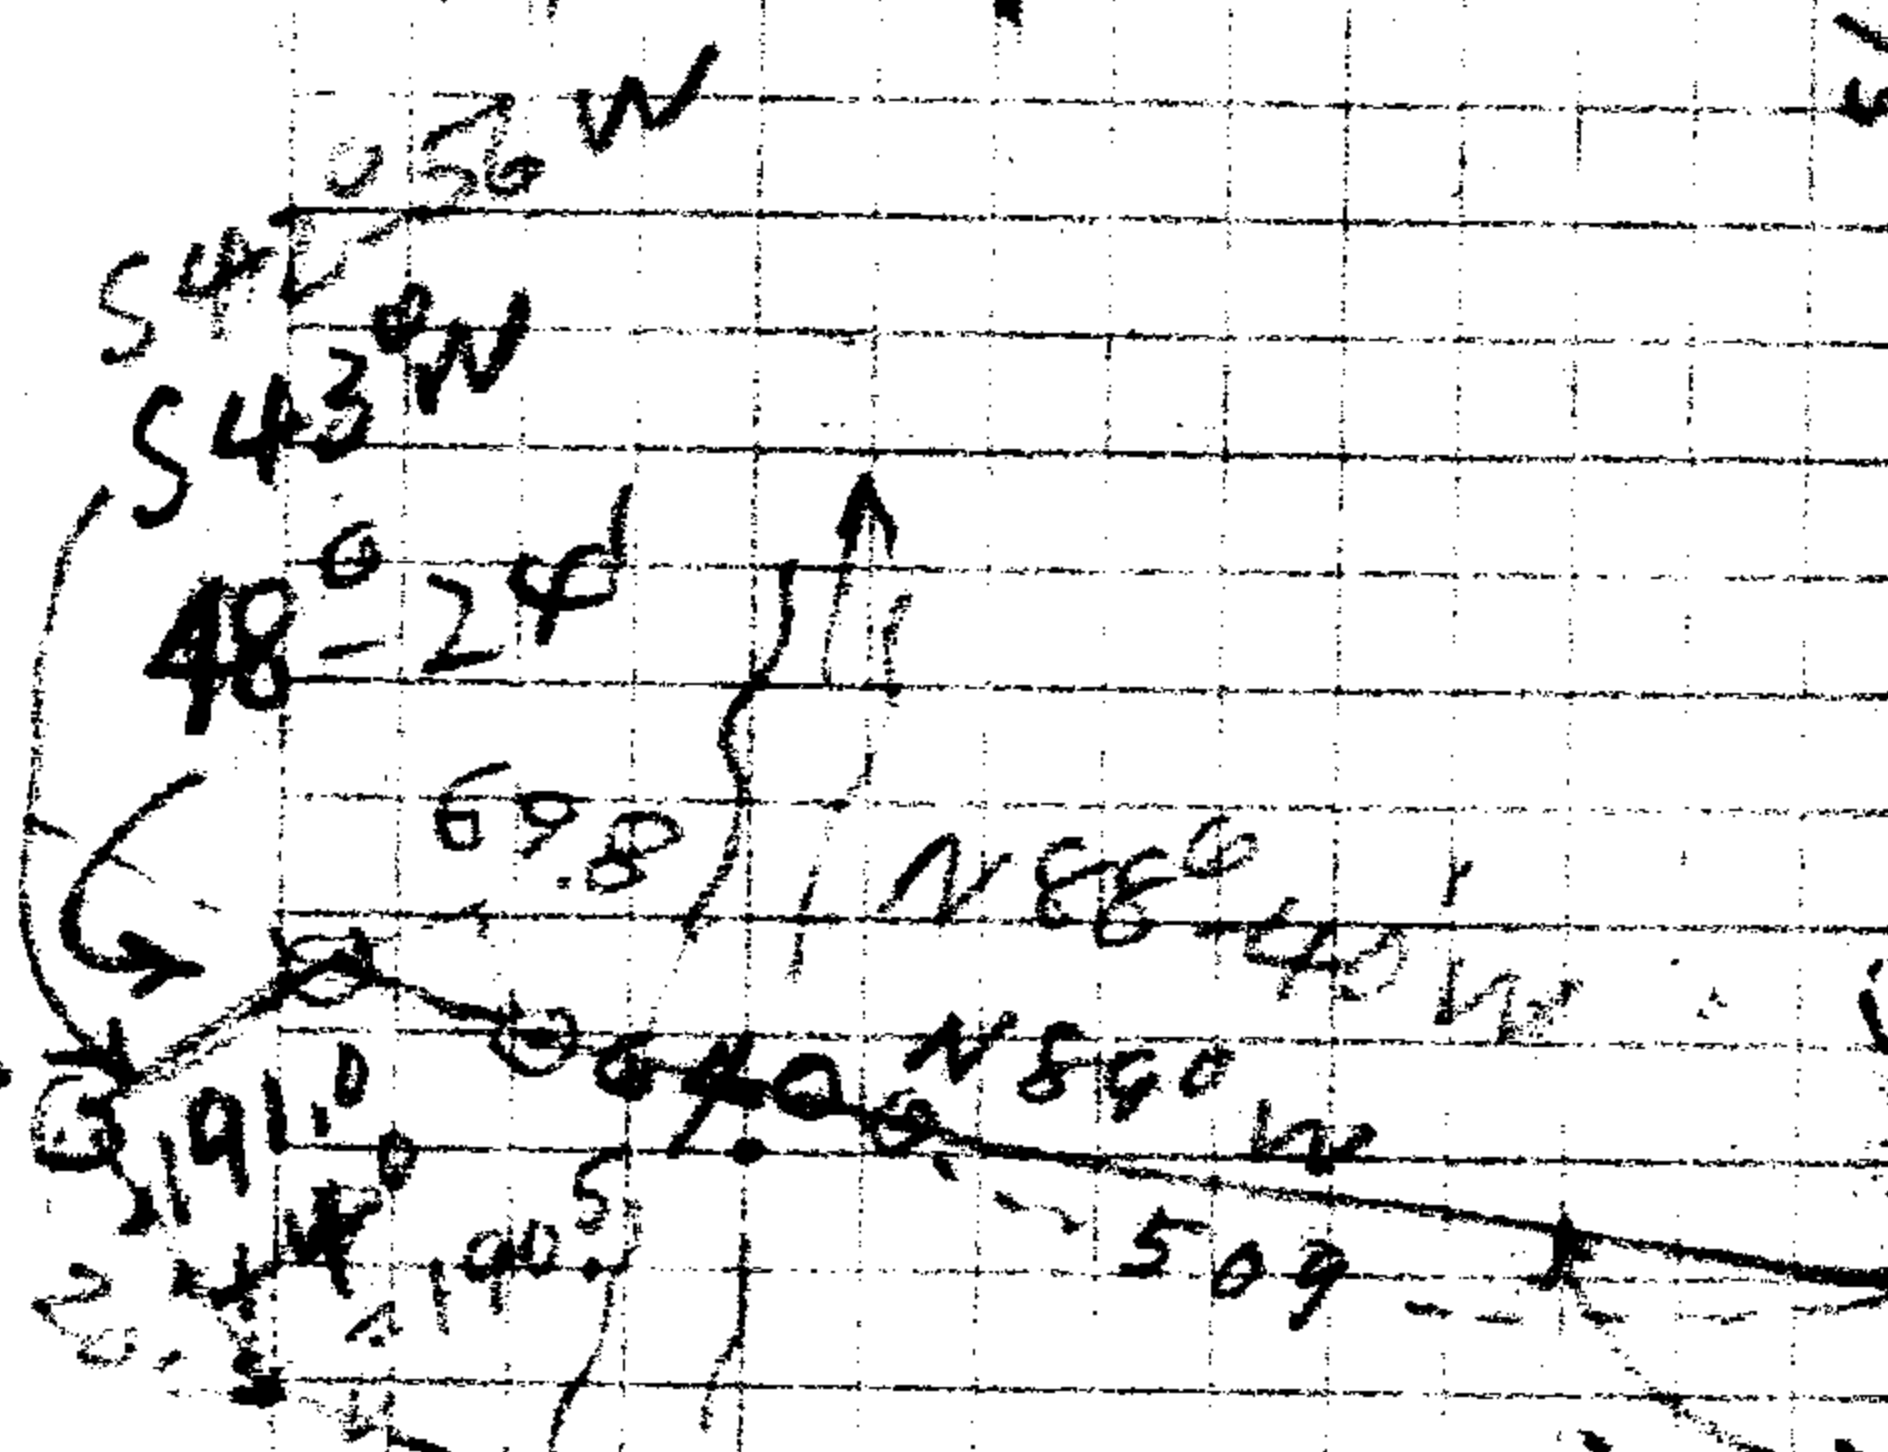 S42°-56'W
S43°W
48°-24'
69.8
N88°-40'W
640
N89°W
191.0
190.5
509